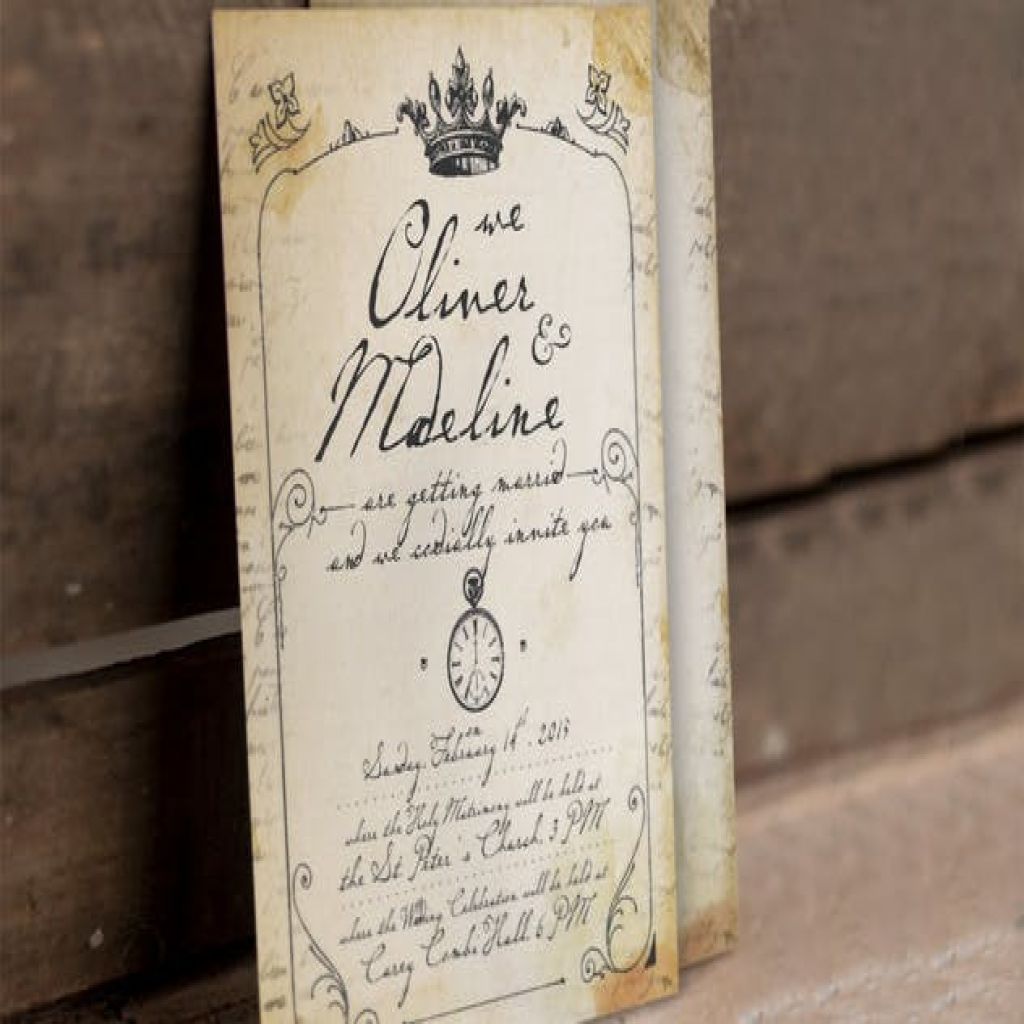 we
Oliver
&
Madeline
are getting married
and we cordially invite you
on
Sunday, February 14th, 2013
where the Holy Matrimony will be held at
the St Peter's Church, 3 PM
where the Wedding Celebration will be held at
Carey Combe Hall, 6 PM